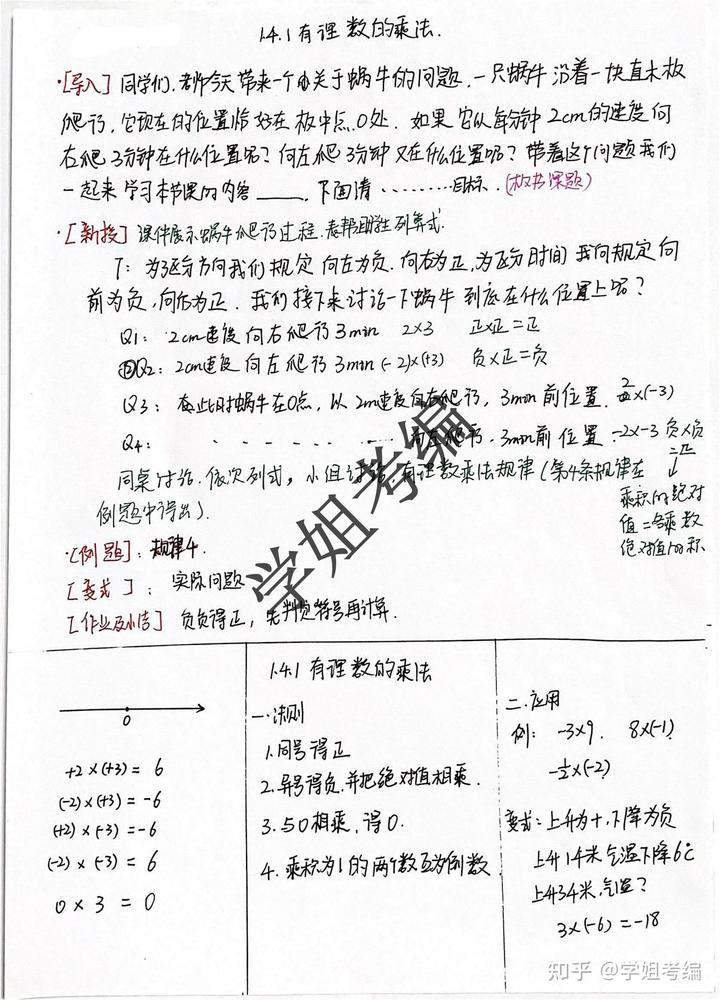 1.4.1 有理数的乘法.
·[导入] 同学们.老师今天带来一个关于蜗牛的问题.一只蜗牛沿着一块直木板
爬行,它现在的位置恰好在板中点.O处.如果它以每分钟2cm的速度向
右爬3分钟在什么位置呢?向左爬3分钟又在什么位置呢?带着这个问题我们
一起来学习本节课的内容____.下面请........目标.(板书课题)
·[新授] 课件展示蜗牛爬行过程.老师帮助学生列算式.
T: 为区分方向我们规定向左为负.向右为正,为区分时间我们规定向
前为负,向后为正.我们接下来讨论一下蜗牛到底在什么位置上呢?
Q1: 2cm速度向右爬行3min 2×3 正×正=正
Q2: 2cm速度向左爬行3min (-2)×(+3) 负×正=负
Q3: 此时蜗牛在0点,以2cm速度向右爬行,3min前位置. 2×(-3)
Q4: 向左爬行.3min前位置 -2×-3 负×负
=正
同桌讨论.依次列式,小组讨论.有理数乘法规律(第4条规律在
例题中得出).
乘积的绝对
值=各乘数
绝对值的积
·[例题]: 规律4.
[变式]: 实际问题
[作业及小结] 负负得正,先判定符号再计算.
0
+2×(+3)=6
(-2)×(+3)=-6
(+2)×(-3)=-6
(-2)×(-3)=6
0×3=0
1.4.1 有理数的乘法
一.法则
1.同号得正
2.异号得负.并把绝对值相乘.
3.与0相乘,得0.
4.乘积为1的两个数互为倒数
二.应用
例: -3×9. 8×(-1)
-½×(-2)
变式:上升为+,下降为负
上升1千米气温下降6℃
上升3千米,气温?
3×(-6)=-18
学姐考编
知乎 @学姐考编